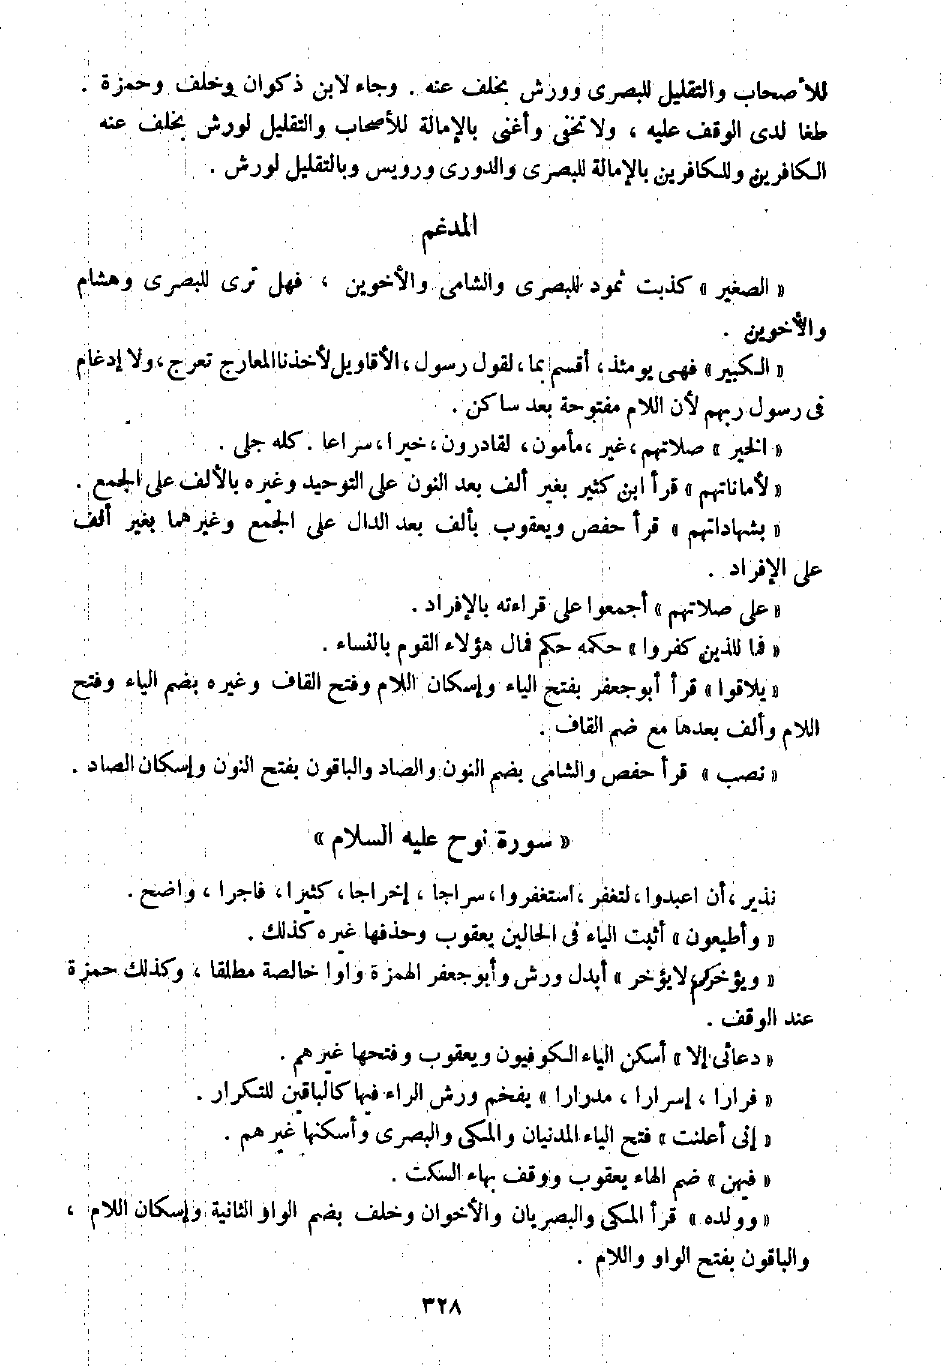 للأصحاب والتقليل للبصرى وورش بخلف عنه . وجاء لابن ذكوان وخلف وحمزة .
طغا لدى الوقف عليه ، ولا تخفى وأغنى بالإمالة للأصحاب والتقليل لورش بخلف عنه
الكافرين وللكافرين بالإمالة للبصرى والدورى ورويس وبالتقليل لورش .
المدغم
« الصغير » كذبت ثمود للبصرى والشامى والأخوين ، فهل ترى للبصرى وهشام
والأخوين .
« الكبير » فهى يومئذ، أقسم بما، لقول رسول، الأقاويل لأخذنا المعارج تعرج، ولا إدغام
فى رسول ربهم لأن اللام مفتوحة بعد ساكن .
« الخير » صلاتهم، غير، مأمون، لقادرون، خيرا، سراعا . كله جلى .
« لأماناتهم » قرأ ابن كثير بغير ألف بعد النون على التوحيد وغيره بالألف على الجمع .
« بشهاداتهم » قرأ حفص ويعقوب بألف بعد الدال على الجمع وغيرهما بغير ألف
على الإفراد .
« على صلاتهم » أجمعوا على قراءته بالإفراد .
« فما للذين كفروا » حكمه حكم فمال هؤلاء القوم بالنساء .
« يلاقوا » قرأ أبو جعفر بفتح الياء وإسكان اللام وفتح القاف وغيره بضم الياء وفتح
اللام وألف بعدها مع ضم القاف .
« نصب » قرأ حفص والشامى بضم النون والصاد والباقون بفتح النون وإسكان الصاد .
« سورة نوح عليه السلام »
نذير، أن اعبدوا، لتغفر، استغفروا، سراجا ، إخراجا، كثيرا، فاجرا ، واضح .
« وأطيعون » أثبت الياء فى الحالين يعقوب وحذفها غيره كذلك .
« ويؤخركم لا يؤخر » أبدل ورش وأبو جعفر الهمزة واوا خالصة مطلقا ، وكذلك حمزة
عند الوقف .
« دعائى إلا » أسكن الياء الكوفيون ويعقوب وفتحها غيرهم .
« فرارا ، إسرارا ، مدرارا » يفخم ورش الراء فيها كالباقين للتكرار .
« إنى أعلنت » فتح الياء المدنيان والمكى والبصرى وأسكنها غيرهم .
« فيهن » ضم الهاء يعقوب ووقف بهاء السكت .
« وولده » قرأ المكى والبصريان والأخوان وخلف بضم الواو الثانية وإسكان اللام ،
والباقون بفتح الواو واللام .
٣٢٨